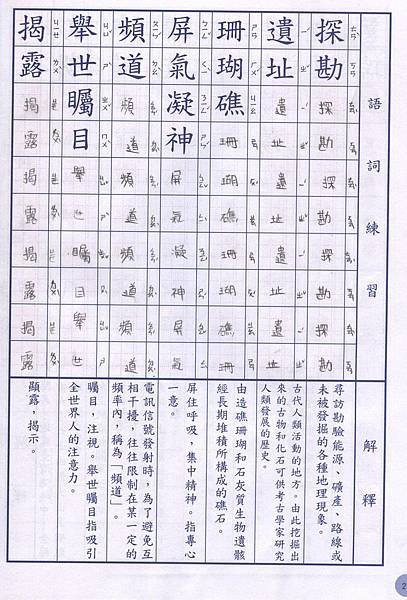 語詞練習
解釋
探勘
探勘探勘探勘探勘
尋訪勘驗能源、礦產、路線或
未被發掘的各種地理現象。
遺址
遺址遺址遺址遺址
古代人類活動的地方。由此挖掘出
來的古物和化石可供考古學家研究
人類發展的歷史。
珊瑚礁
珊瑚礁珊瑚礁珊
由造礁珊瑚和石灰質生物遺骸
經長期堆積所構成的礁石。
屏氣凝神
屏氣凝神屏氣
屏住呼吸，集中精神。指專心
一意。
頻道
頻道頻道頻道頻道
電訊信號發射時，為了避免互
相干擾，往往限制在某一定的
頻率內，稱為「頻道」。
舉世矚目
舉世矚目舉世
矚目，注視。舉世矚目指吸引
全世界人的注意力。
揭露
揭露揭露揭露揭露
顯露，揭示。
2